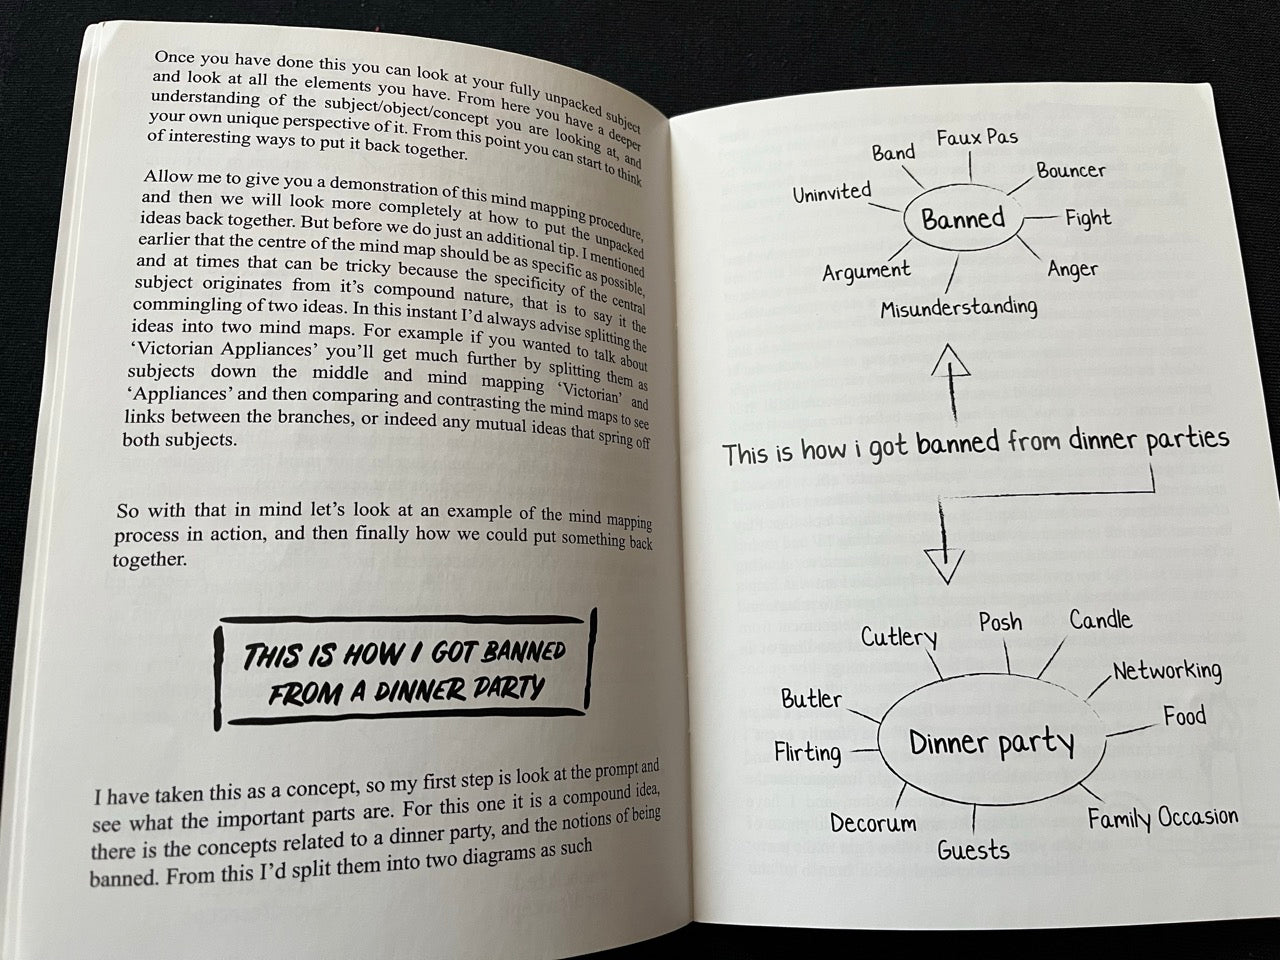 Once you have done this you can look at your fully unpacked subject
and look at all the elements you have. From here you have a deeper
understanding of the subject/object/concept you are looking at, and
your own unique perspective of it. From this point you can start to think
of interesting ways to put it back together.
Allow me to give you a demonstration of this mind mapping procedure,
and then we will look more completely at how to put the unpacked
ideas back together. But before we do just an additional tip. I mentioned
earlier that the centre of the mind map should be as specific as possible,
and at times that can be tricky because the specificity of the central
subject originates from it's compound nature, that is to say it the
commingling of two ideas. In this instant I'd always advise splitting the
ideas into two mind maps. For example if you wanted to talk about
'Victorian Appliances' you'll get much further by splitting them as
subjects down the middle and mind mapping 'Victorian' and
'Appliances' and then comparing and contrasting the mind maps to see
links between the branches, or indeed any mutual ideas that spring off
both subjects.
So with that in mind let's look at an example of the mind mapping
process in action, and then finally how we could put something back
together.
THIS IS HOW I GOT BANNED
FROM A DINNER PARTY
I have taken this as a concept, so my first step is look at the prompt and
see what the important parts are. For this one it is a compound idea,
there is the concepts related to a dinner party, and the notions of being
banned. From this I'd split them into two diagrams as such
Faux Pas
Band
Bouncer
Uninvited
Banned
Fight
Argument
Anger
Misunderstanding
This is how i got banned from dinner parties
Posh
Candle
Cutlery
Networking
Butler
Food
Dinner party
Flirting
Family Occasion
Decorum
Guests